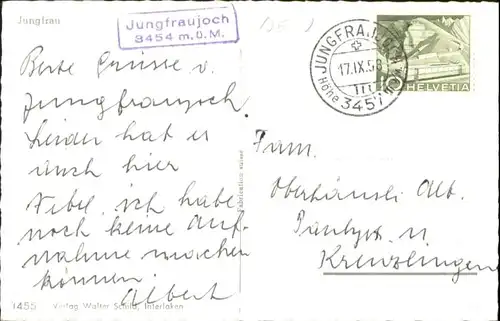 Jungfrau
Jungfraujoch
3454 m.ü.M.
JUNGFRAUJOCH
17.IX.58
Höhe 3457 m
10
HELVETIA
Beste Grüsse v.
Jungfraujoch
Leider hat es
auch hier
Nebel. ich habe
noch keine Auf-
nahme machen
können.
Albert
Fabrikation suisse
Fam.
Oberhänsli Alb.
Kreuzlingen
1455 Verlag Walter Schild, Interlaken